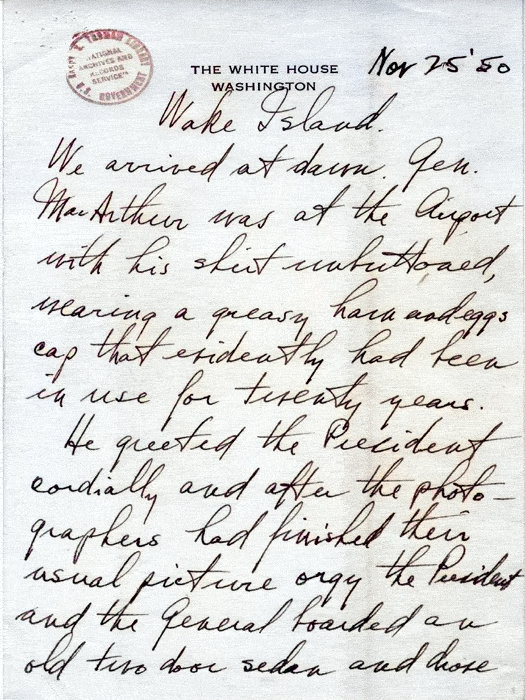 HARRY S. TRUMAN LIBRARY
NATIONAL
ARCHIVES AND
RECORDS
SERVICE
U.S. GOVERNMENT
THE WHITE HOUSE
WASHINGTON
Nov 25 '50
Wake Island.
We arrived at dawn. Gen.
MacArthur was at the Airport
with his shirt unbuttoned,
wearing a greasy ham and eggs
cap that evidently had been
in use for twenty years.
He greeted the President
cordially and after the photo-
graphers had finished their
usual picture orgy the President
and the General boarded an
old two door sedan and drove